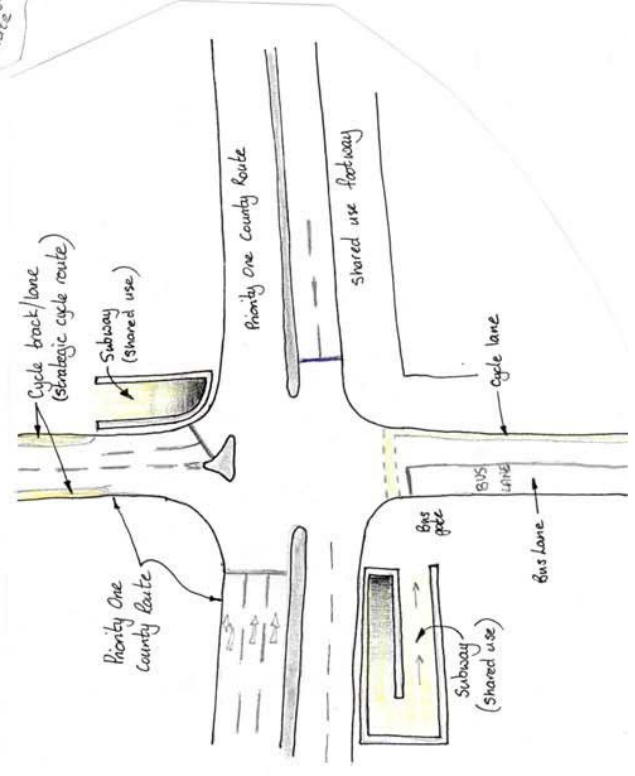 Cycle track/lane
(strategic cycle route)
Subway
(shared use)
Priority One County Route
Shared use footway
Priority One
County Route
Cycle lane
BUS
LANE
Bus
gate
Bus Lane
Subway
(shared use)